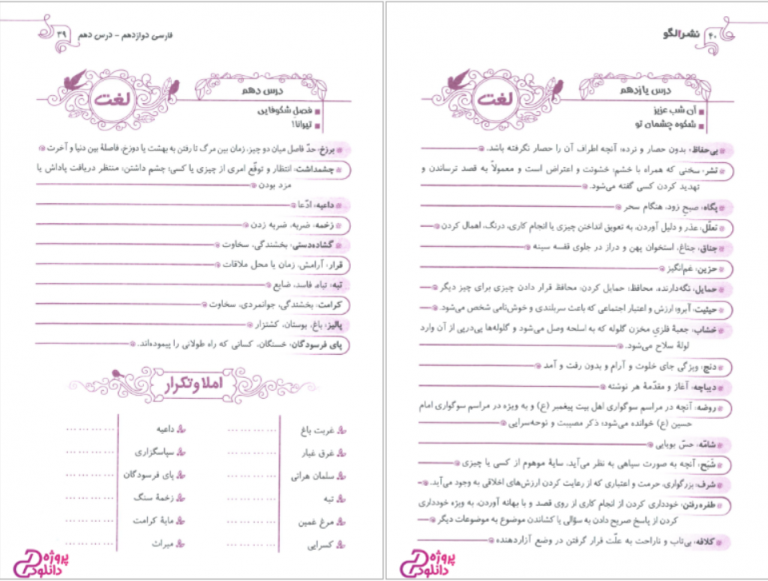 ۴۰ نشرالگو
درس یازدهم
آن شب عزیز
شکوه چشمان تو
لغت
بی‌حفاظ: بدون حصار و نرده؛ آنچه اطراف آن را حصار نگرفته باشد.
تشر: سخنی که همراه با خشم، خشونت و اعتراض است و معمولاً به قصد ترساندن و
تهدید کردن کسی گفته می‌شود.
پگاه: صبح زود، هنگام سحر
تعلّل: عذر و دلیل آوردن، به تعویق انداختن چیزی یا انجام کاری، درنگ، اهمال کردن
جناق: جناغ، استخوان پهن و دراز در جلوی قفسه سینه
حزین: غم‌انگیز
حمایل: نگه‌دارنده، محافظ؛ حمایل کردن: محافظ قرار دادن چیزی برای چیز دیگر
حیثیت: آبرو، ارزش و اعتبار اجتماعی که باعث سربلندی و خوش‌نامی شخص می‌شود.
خشاب: جعبهٔ فلزی مخزن گلوله که به اسلحه وصل می‌شود و گلوله‌ها پی‌درپی از آن وارد
لولهٔ سلاح می‌شود.
دنج: ویژگی جای خلوت و آرام و بدون رفت و آمد
دیباچه: آغاز و مقدّمهٔ هر نوشته
روضه: آنچه در مراسم سوگواری اهل بیت پیغمبر (ع) و به ویژه در مراسم سوگواری امام
حسین (ع) خوانده می‌شود؛ ذکر مصیبت و نوحه‌سرایی
شامّه: حسّ بویایی
شَبَح: آنچه به صورت سیاهی به نظر می‌آید، سایهٔ موهوم از کسی یا چیزی
شرف: بزرگواری، حرمت و اعتباری که از رعایت کردن ارزش‌های اخلاقی به وجود می‌آید.
طفره‌رفتن: خودداری کردن از انجام کاری از روی قصد و با بهانه آوردن، به ویژه خودداری
کردن از پاسخ صریح دادن به سؤالی یا کشاندن موضوع به موضوعات دیگر
کلافه: بی‌تاب و ناراحت به علّت قرار گرفتن در وضع آزاردهنده
پروژه
دانلود
فارسی دوازدهم – درس دهم ۳۹
درس دهم
فصل شکوفایی
تیرانا!
لغت
برزخ: حدّ فاصل میان دو چیز، زمان بین مرگ تا رفتن به بهشت یا دوزخ، فاصلهٔ بین دنیا و آخرت
چشمداشت: انتظار و توقّع امری از چیزی یا کسی؛ چشم داشتن: منتظر دریافت پاداش یا
مزد بودن
داعیه: ادّعا
زخمه: ضربه، ضربه زدن
گشاده‌دستی: بخشندگی، سخاوت
قرار: آرامش، زمان یا محل ملاقات
تبه: تباه، فاسد، ضایع
کرامت: بخشندگی، جوانمردی، سخاوت
پالیز: باغ، بوستان، کشتزار
پای فرسودگان: خستگان، کسانی که راه طولانی را پیموده‌اند.
املا و تکرار
غربت باغ داعیه
غرق غبار سپاسگزاری
سلمان هراتی پای فرسودگان
تبه زخمهٔ سنگ
مرغ غمین مایهٔ کرامت
کسرایی میراث
پروژه
دانلود